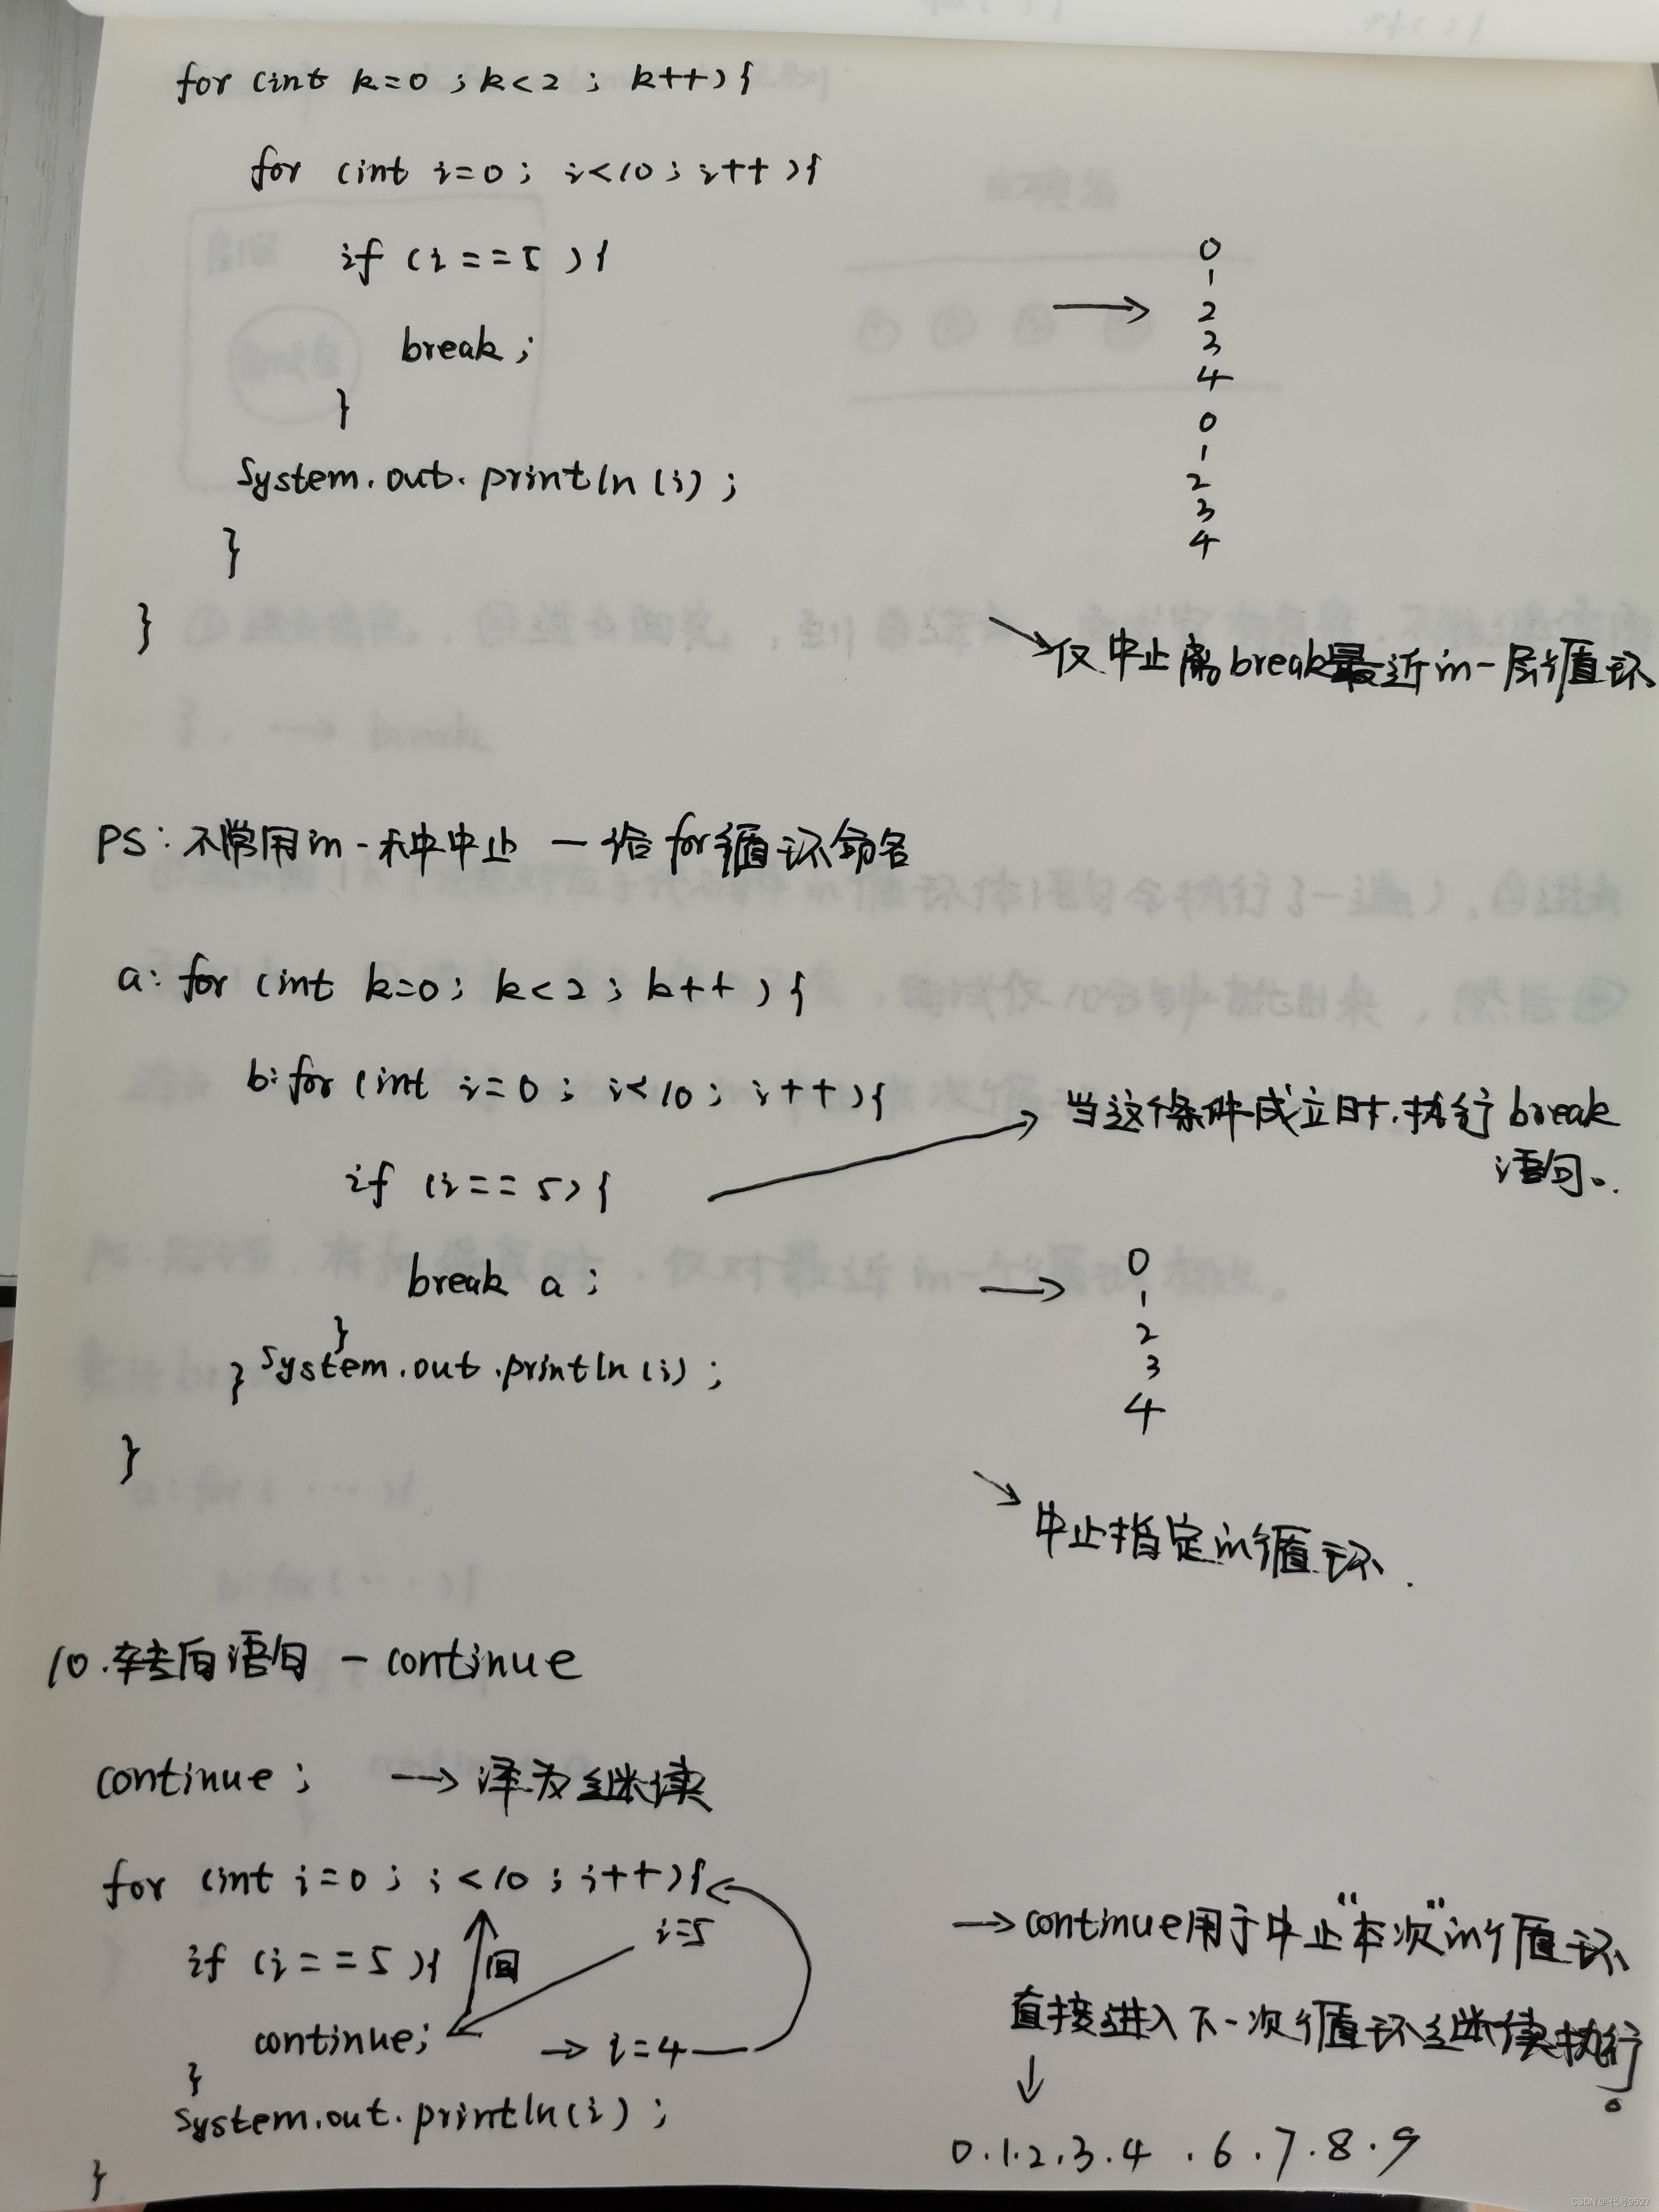 for (int k=0 ; k<2 ; k++){
for (int i=0 ; i<10 ; i++){
if (i==5){
break ;
}
System.out.println(i) ;
}
}
→
0
1
2
3
4
0
1
2
3
4
仅中止离break最近的一层循环
PS: 不常用的一种中止 - 给for循环命名
a: for (int k=0; k<2 ; k++){
b: for (int i=0 ; i<10 ; i++){
→ 当这个条件成立时.执行break
语句。
if (i==5){
break a ;
}
} System.out.println(i) ;
}
→
0
1
2
3
4
中止指定的循环.
10.转向语句 - continue
continue ; → 译为继续
for (int i=0 ; i<10 ; i++){
if (i==5){
回
i=5
continue;
→ i=4
}
System.out.println(i) ;
}
→ continue用于中止“本次”的循环
直接进入下一次循环继续执行。
↓
0.1.2.3.4 .6.7.8.9
CSDN @代号9527